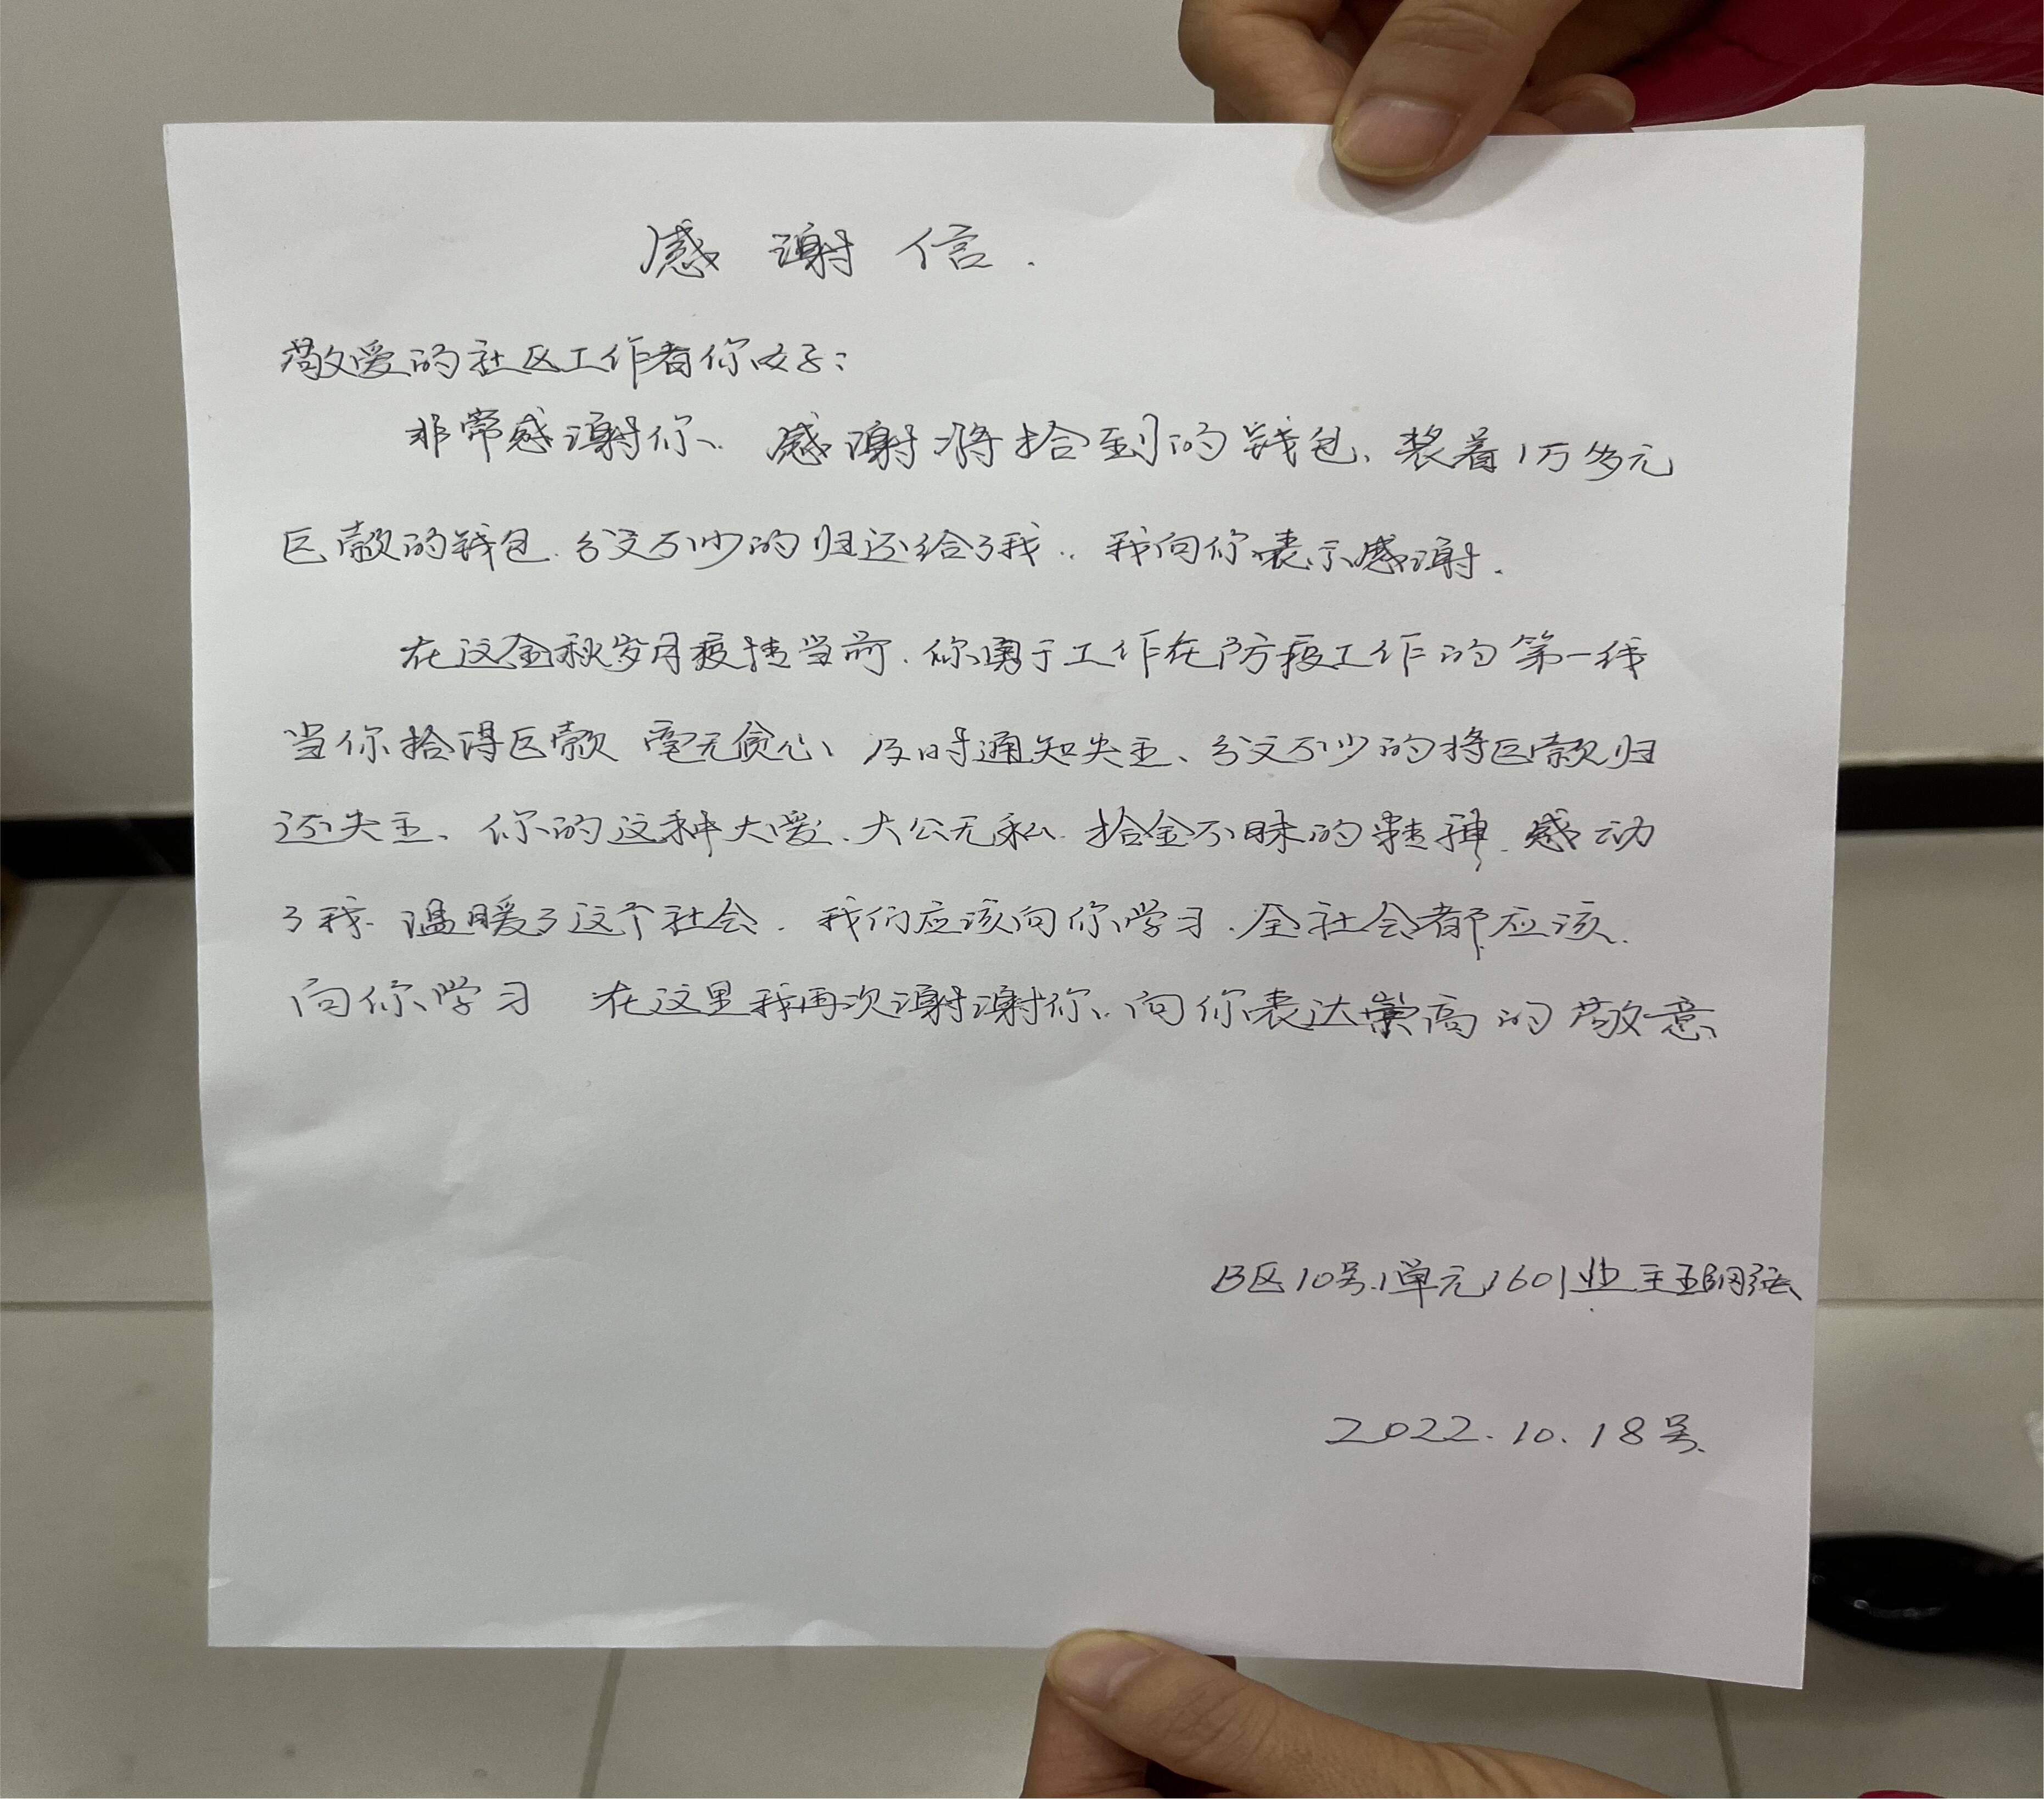 感谢信.
敬爱的社区工作者你好:
非常感谢你、感谢将拾到的钱包、装着1万多元
巨款的钱包.分文不少的归还给了我..我向你表示感谢.
在这金秋岁月疫情当前.你勇于工作在防疫工作的第一线
当你拾得巨款 毫无贪心、及时通知失主、分文不少的将巨款归
还失主、你的这种大爱、大公无私.拾金不昧的精神.感动
了我.温暖了这个社会.我们应该向你学习.全社会都应该.
向你学习 在这里我再次谢谢你.向你表达崇高的敬意
B区10号.1单元1601业主
2022.10.18号.